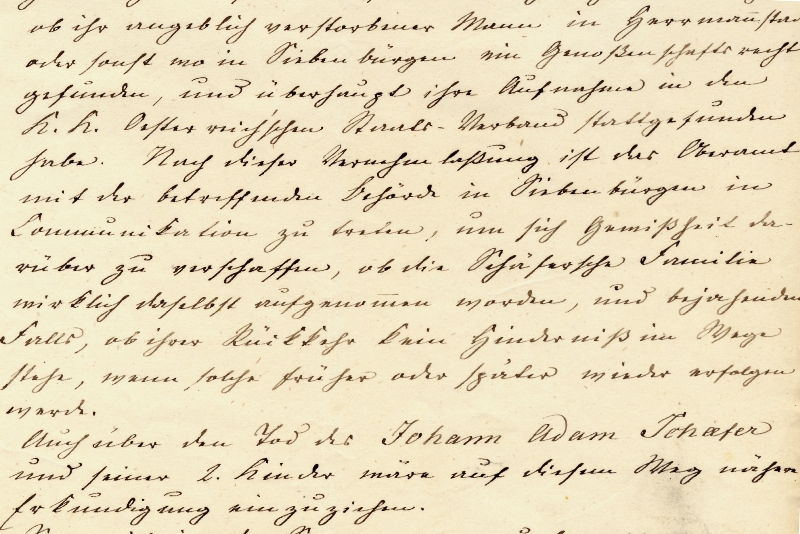 ob ihr angeblich verstorbener Mann in Herrmannstad
oder sonst wo in Siebenbürgen ein Genoßenschaftsrecht
gefunden, und überhaupt ihre Aufnahme in den
K. K. Oesterreich'schen Staats-Verband stattgefunden
habe. Nach dieser Vernehmlaßung ist das Oberamt
mit der betreffenden Behörde in Siebenbürgen in
Communikation zu treten, um sich Gewißheit da-
rüber zu verschaffen, ob die Schäfersche Familie
wirklich daselbst aufgenommen worden, und bejahenden
Falls, ob ihrer Rückkehr kein Hinderniß im Wege
stehe, wenn solche früher oder später wieder erfolgen
werde.
Auch über den Tod des Johann Adam Schæfer
und seiner 2. Kinder wäre auf diesem Weg nähere
Erkundigung einzuziehen.